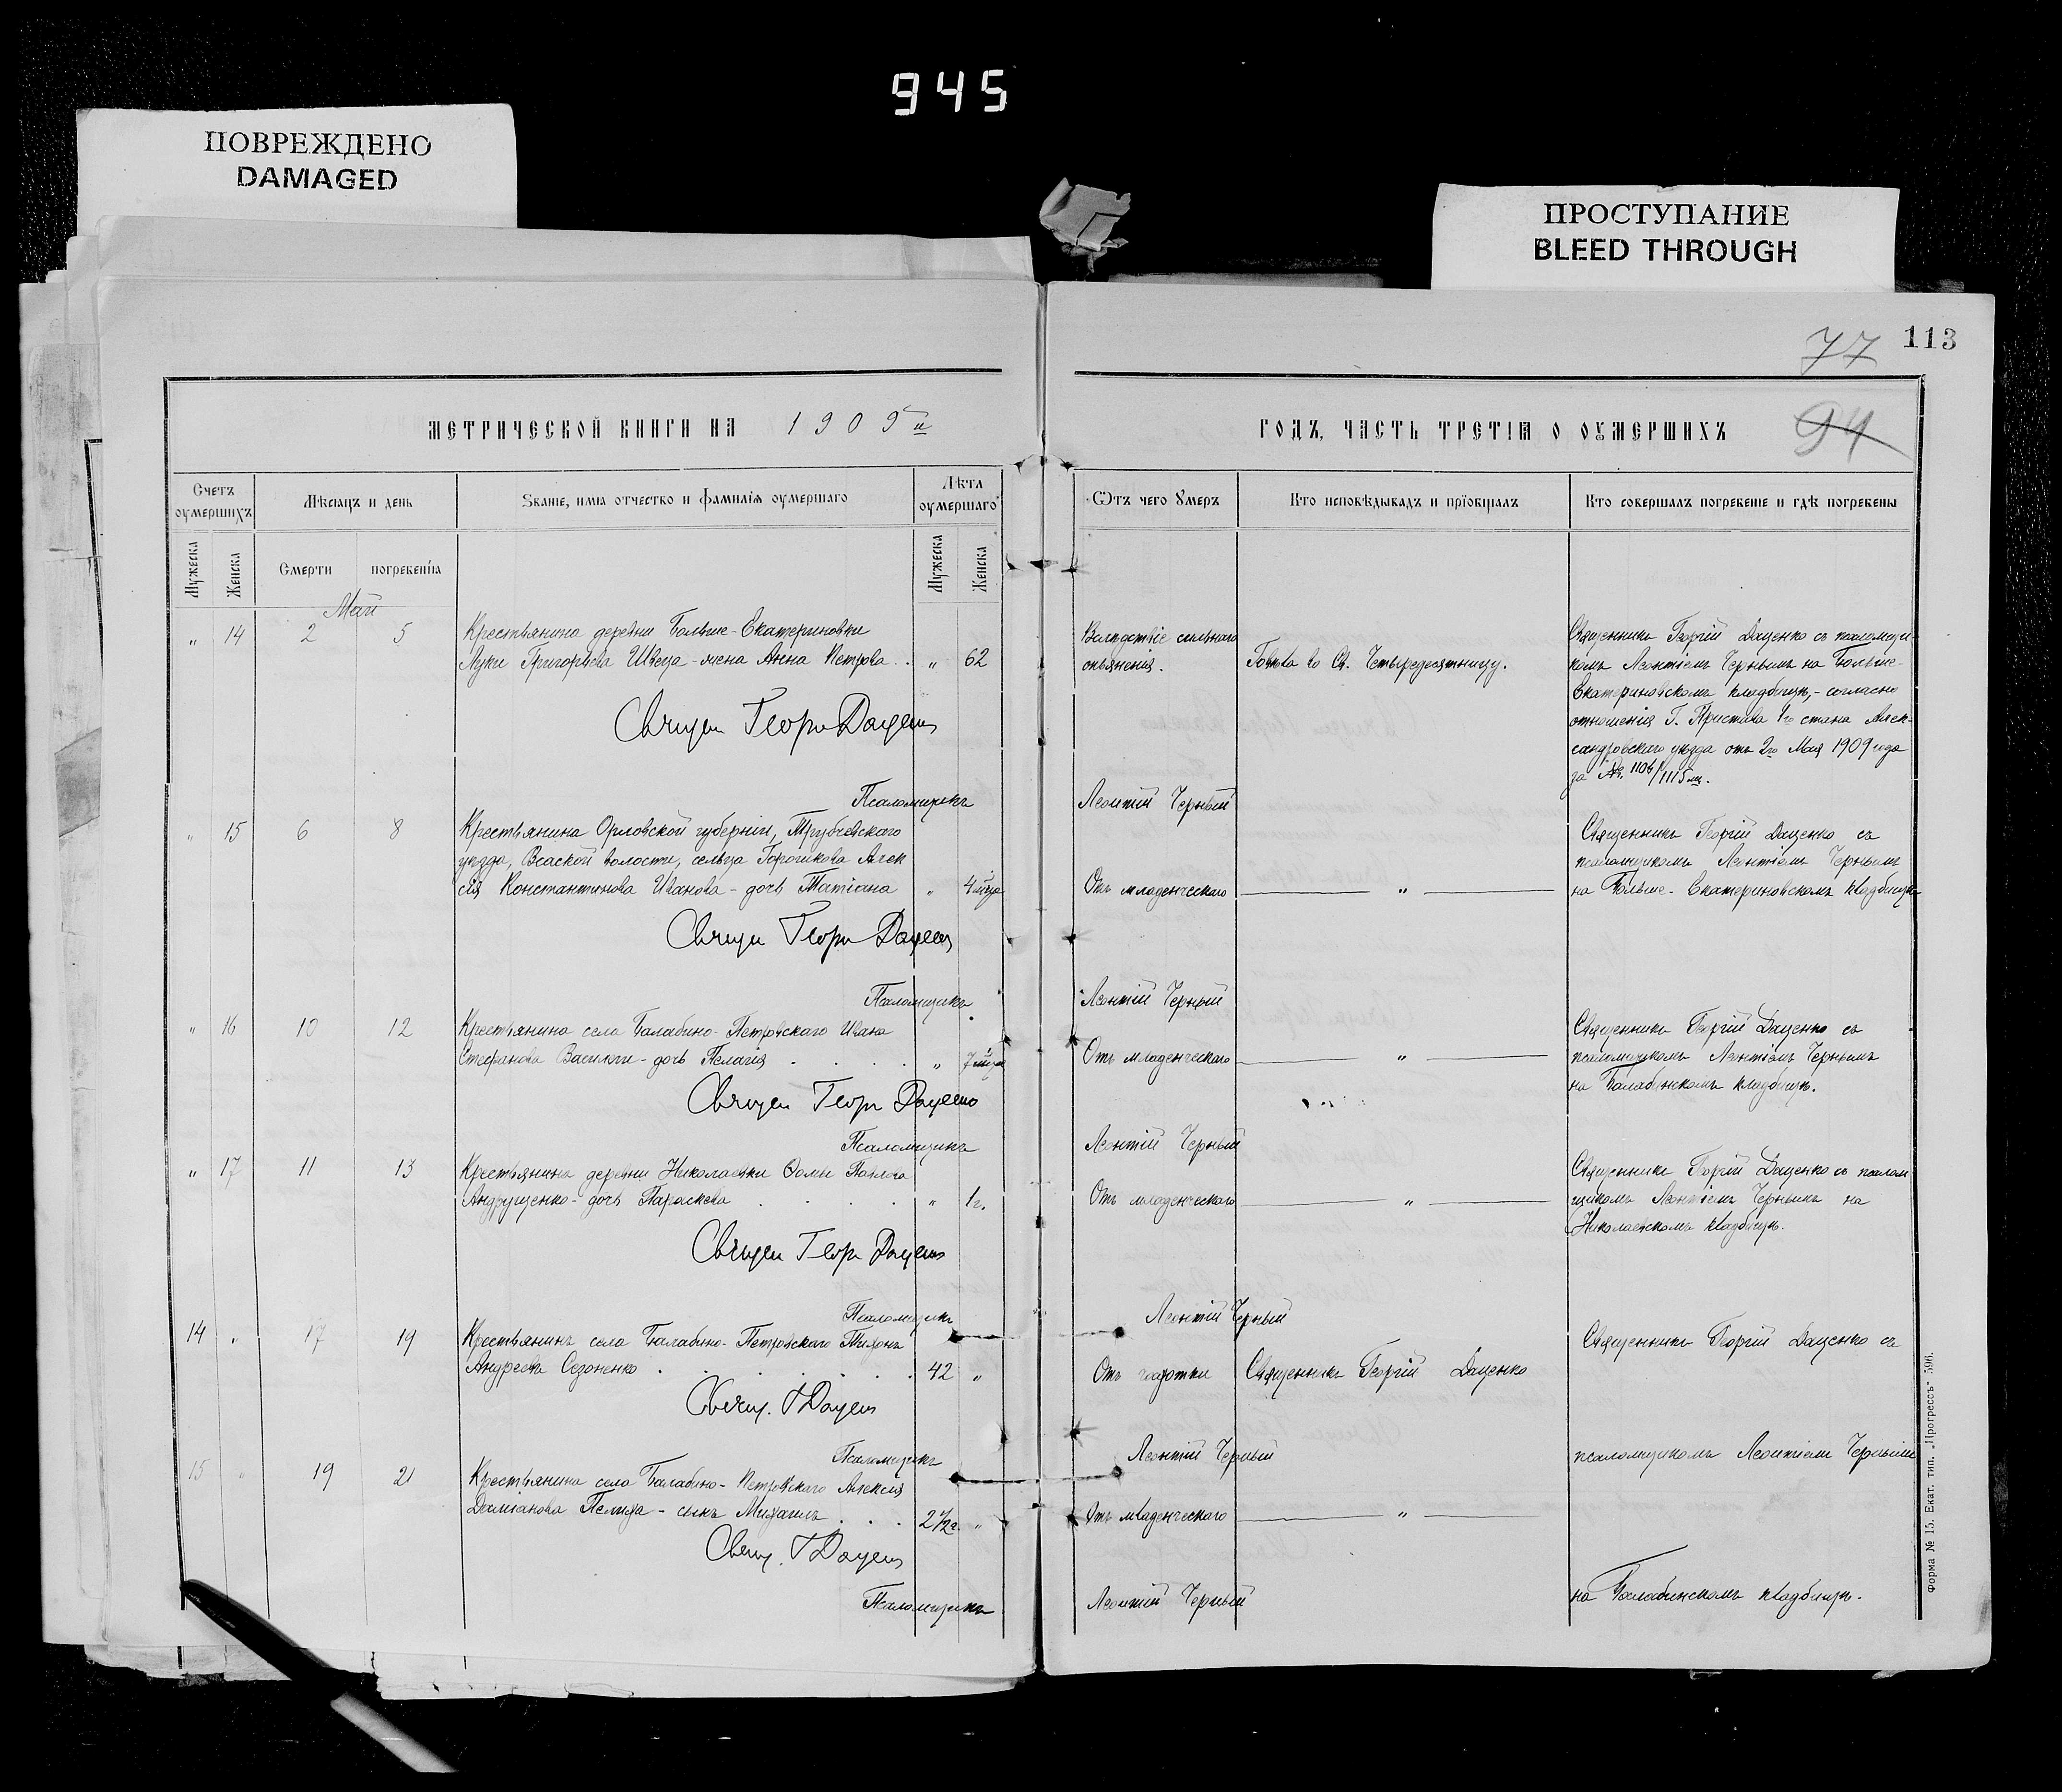 945
ПОВРЕЖДЕНО
DAMAGED
ПРОСТУПАНИЕ
BLEED THROUGH
77 113
94
МЕТРИЧЕСКОЙ КНИГИ НА 1909й
ГОДЪ, ЧАСТЬ ТРЕТІЯ О ОУМЕРШИХЪ
Счетъ оумершихъ
Мѣсяцъ и день
Званіе, имя отчество и фамилія оумершаго
Лѣта оумершаго
Ѿтъ чего Умеръ
Кто исповѣдывалъ и пріобщалъ
Кто совершалъ погребеніе и гдѣ погребены
Мужеска
Женска
Смерти
погребенія
Мужеска
Женска
Май
„ 14 2 5
Крестьянина деревни Больше-Екатериновки
Луки Григорьева Швеца - жена Анна Петрова . . „ 62
Вслѣдствіе сильнаго
опьянения.
Говѣла во Св. Четыредесятницу.
Священникъ Георгій Даценко съ псаломщи-
комъ Леонтіемъ Чернымъ на Больше-
Екатериновскомъ кладбищѣ, - согласно
отношенія Г. Пристава 1го стана Алек-
сандровскаго уѣзда отъ 2го Мая 1909 года
за №
Священ Георг Даценко
Псаломщикъ Леонтій Черный
„ 15 6 8
Крестьянина Орловской губерніи, Трубчевскаго
уѣзда, волости, сельца Алек
сѣя Константинова Иванова - дочь Татіана „ 4 мца
Отъ младенческаго „
Священникъ Георгій Даценко съ
псаломщикомъ Леонтіемъ Чернымъ
на Больше-Екатериновскомъ кладбищѣ
Священ Георг Даценко
Псаломщикъ Леонтій Черный
„ 16 10 12
Крестьянина села Балабино-Петровскаго Ивана
Стефанова - дочь Пелагія . . . . „ 7 мца
Отъ младенческаго „
Священникъ Георгій Даценко съ
псаломщикомъ Леонтіемъ Чернымъ
на Балабинскомъ кладбищѣ.
Священ Георг Даценко
Псаломщикъ Леонтій Черный
„ 17 11 13
Крестьянина деревни Николаевки Ѳомы Павлова
Андрущенко - дочь Параскева . . . . „ 1 г.
Отъ младенческаго „
Священникъ Георгій Даценко съ псалом
щикомъ Леонтіемъ Чернымъ на
Николаевскомъ кладбищѣ.
Священ Георг Даценко
Псаломщикъ Леонтій Черный
14 „ 17 19
Крестьянинъ села Балабино-Петровскаго Тихонъ
Андреевъ Сезоненко . . . . . . 42 „
Отъ чахотки
Священникъ Георгій Даценко
Священникъ Георгій Даценко съ
Свящ. Г Даценко
Псаломщикъ Леонтій Черный
псаломщикомъ Леонтіемъ Чернымъ
15 „ 19 21
Крестьянина села Балабино-Петровскаго Алексія
Даміанова - сынъ Михаилъ . . . 2 1/2 г. „
Отъ младенческаго „
Свящ. Г Даценко
Псаломщикъ Леонтій Черный
на Балабинскомъ кладбищѣ.
Форма № 15. Екат. тип. „Прогрессъ" 596.